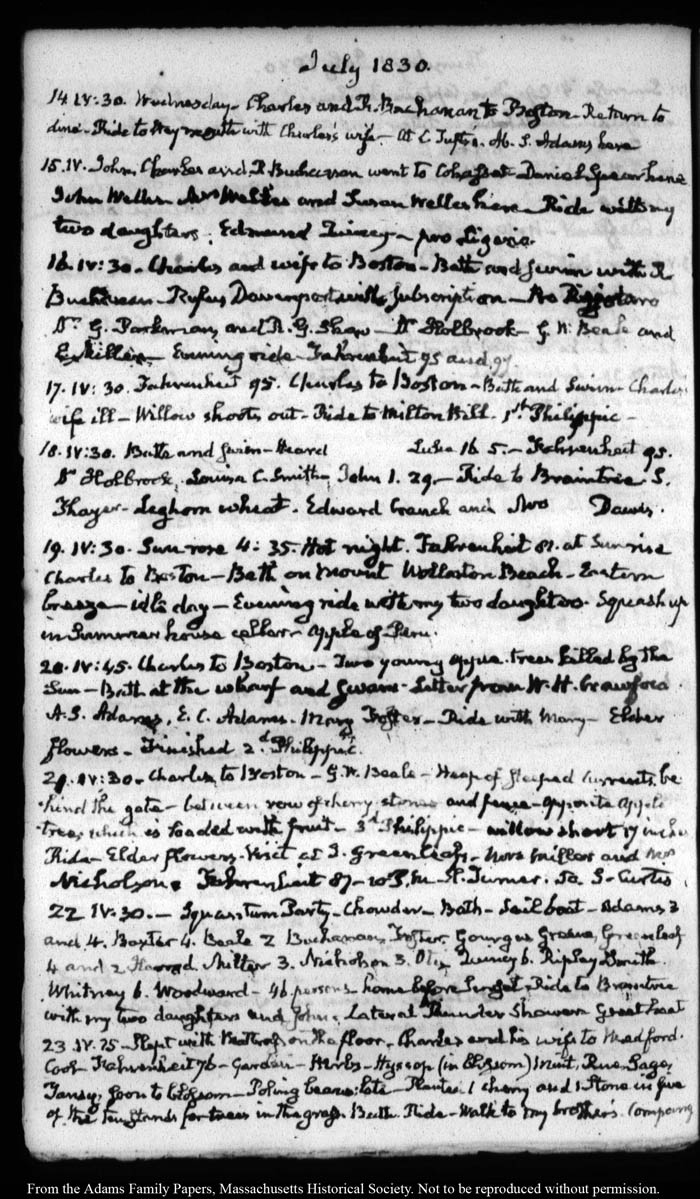 July 1830.
14. IV:30. Wednesday. Charles and R. Buchanan to Boston. Return to
dine. Ride to Weymouth with Charles's wife. At C. Tufts. A. S. Adams here
15. IV. John, Charles and R Buchanan went to Cohasset. Daniel Greenleaf here
John Welles Mrs Welles and Susan Welles here. Ride with my
two daughters. Edmund Quincy. pro Ligario.
16. IV:30. Charles and wife to Boston. Bath and swim with R
Buchanan. Rufus Davenport with Subscription. Pro Dejotaro
Dr. G. Parkman, and R. G. Shaw. Dr Holbrook. G. W. Beale and
E. Miller. Evening ride. Fahrenheit 95 and 97
17. IV:30. Fahrenheit 95. Charles to Boston. Bath and Swim. Charles
wife ill. Willow shoots out. Ride to Milton Hill. 1st Philippic.
18. IV:30. Bath and swim. Heard Luke 16 5. Fahrenheit 95.
Dr Holbrook. Louisa C. Smith. John 1. 29. Ride to Braintree. S.
Thayer. Leghorn wheat. Edward Cranch and Mrs Dawes.
19. IV:30. Sun rose 4:35. Hot night. Fahrenheit 81. at Sunrise
Charles to Boston. Bath on Mount Wollaston Beach. Eastern
breeze. idle day. Evening ride with my two daughters. Squash up
in Summer house cellar. Apple of Peru.
20. IV:45. Charles to Boston. Two young apple trees killed by the
Sun. Bath at the wharf and swam. Letter from W. H. Crawford
A. S. Adams, E. C. Adams. Mary Foster. Ride with Mary. Elder
flowers. Finished 2d. Philippic.
21. IV:30. Charles to Boston. G. W. Beale. Heap of currants be
hind the gate. between row of cherry stones and fence. opposite apple
tree, which is loaded with fruit. 3d Philippic. willow shoot 17 inches
Ride. Elder flowers. Visit at T. Greenleaf's. Mrs Miller and Mrs
Nicholson. Fahrenheit 87. 10 P.M. Turner. To Curtis
22 IV:30. Squantum Party. Chowder. Bath. Sail boat. Adams 3
and 4. Baxter 4. Beale 2 Buchanan, Foster. Gourgas Greene, Greenleaf
4 and 2 Miller 3. Nicholson 3. Quincy 6. Ripley Smith.
Whitney 6. Woodward. 46 persons. home before Sunset. Ride to Braintree
with my two daughters and John. Lateral Thunder Shower. Great heat
23 IV.25. Slept with on the floor. Charles and his wife to Medford.
Cool Fahrenheit 76. Garden. Herbs. Hyssop (in blossom) Mint, Rue, Sage,
Tansy, soon to blossom. Poling beans: late. Planted 1 cherry and 1 stone in five
of the stands for trees in the grass. Bath. Ride. Walk to my brother's. Company
From the Adams Family Papers, Massachusetts Historical Society. Not to be reproduced without permission.